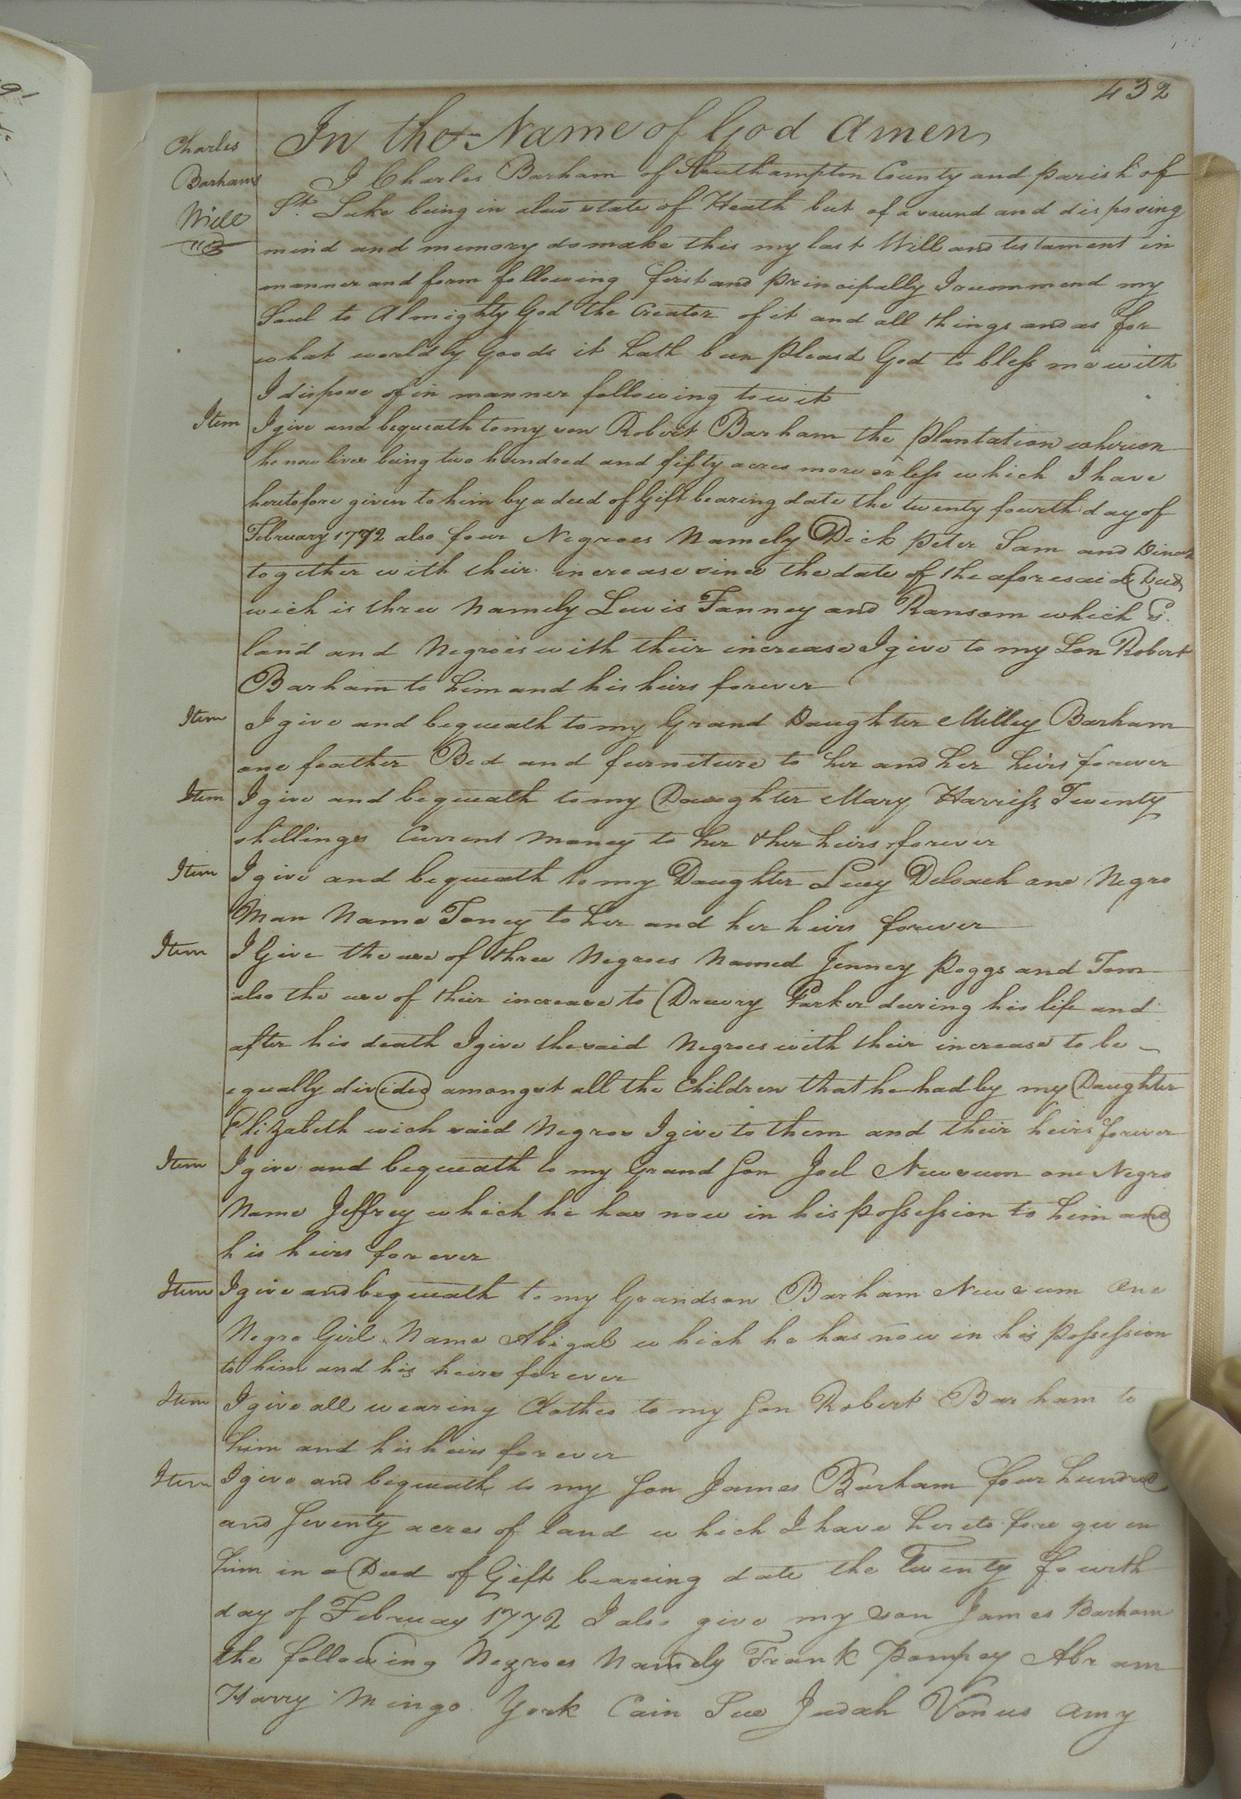 432
Charles
Barhams
Will
In the Name of God Amen
I Charles Barham of Southampton County and parish of
St. Luke being in alow state of Heath but of a sound and disposing
mind and memory do make this my last Will and testament in
manner and form following first and principally I recommend my
Soul to Almighty God the Creator of it and all things and as for
what worldly goods it hath been pleasd God to bless me with
I dispose of in manner following to wit
Item I give and bequeath to my son Robert Barham the plantation whereon
he now lives being two hundred and fifty acres more or less which I have
heretofore given to him by a deed of Gift bearing date the twenty fourth day of
February 1772 also four Negroes Namely Dick Peter Sam and Dinah
together with their increase since the date of the aforesaid Deed
wich is three Namely Lewis Fanney and Ransom which sd.
land and Negroes with their increase I give to my Son Robert
Barham to him and his heirs forever
Item I give and bequeath to my Grand Daughter Milley Barham
one feather Bed and furniture to her and her heirs forever
Item I give and bequeath to my Daughter Mary Harriss Twenty
shillings Current money to her & her heirs forever
Item I give and bequeath to my Daughter Lucy Deloach one Negro
Man Name Toney to her and her heirs forever
Item I Give the use of three Negroes Named Jenney Peggs and Tom
also the use of their increase to Drewry Parker during his life and
after his death I give the said Negroes with their increase to be
equally divided amongst all the Children that he had by my Daughter
Elizabeth wich said Negros I give to them and their heirs forever
Item I give and bequeath to my Grand Son Joel Newsum one Negro
Name Jeffrey which he has now in his possession to him and
his heirs forever
Item I give and bequeath to my Grandson Barham Newsum one
Negro Girl Name Abigal which he has now in his possession
to him and his heirs forever
Item I give all wearing Clothes to my Son Robert Barham to
him and his heirs forever
Item I give and bequeath to my Son James Barham four hundred
and Seventy acres of land which I have hereto fore given
him in a Deed of Gift bearing date the Twenty fourth
day of February 1772 I also give my son James Barham
the following Negroes Namely Frank Pompey Abram
Harry Mingo York Cain Sue Judah Venus Amy